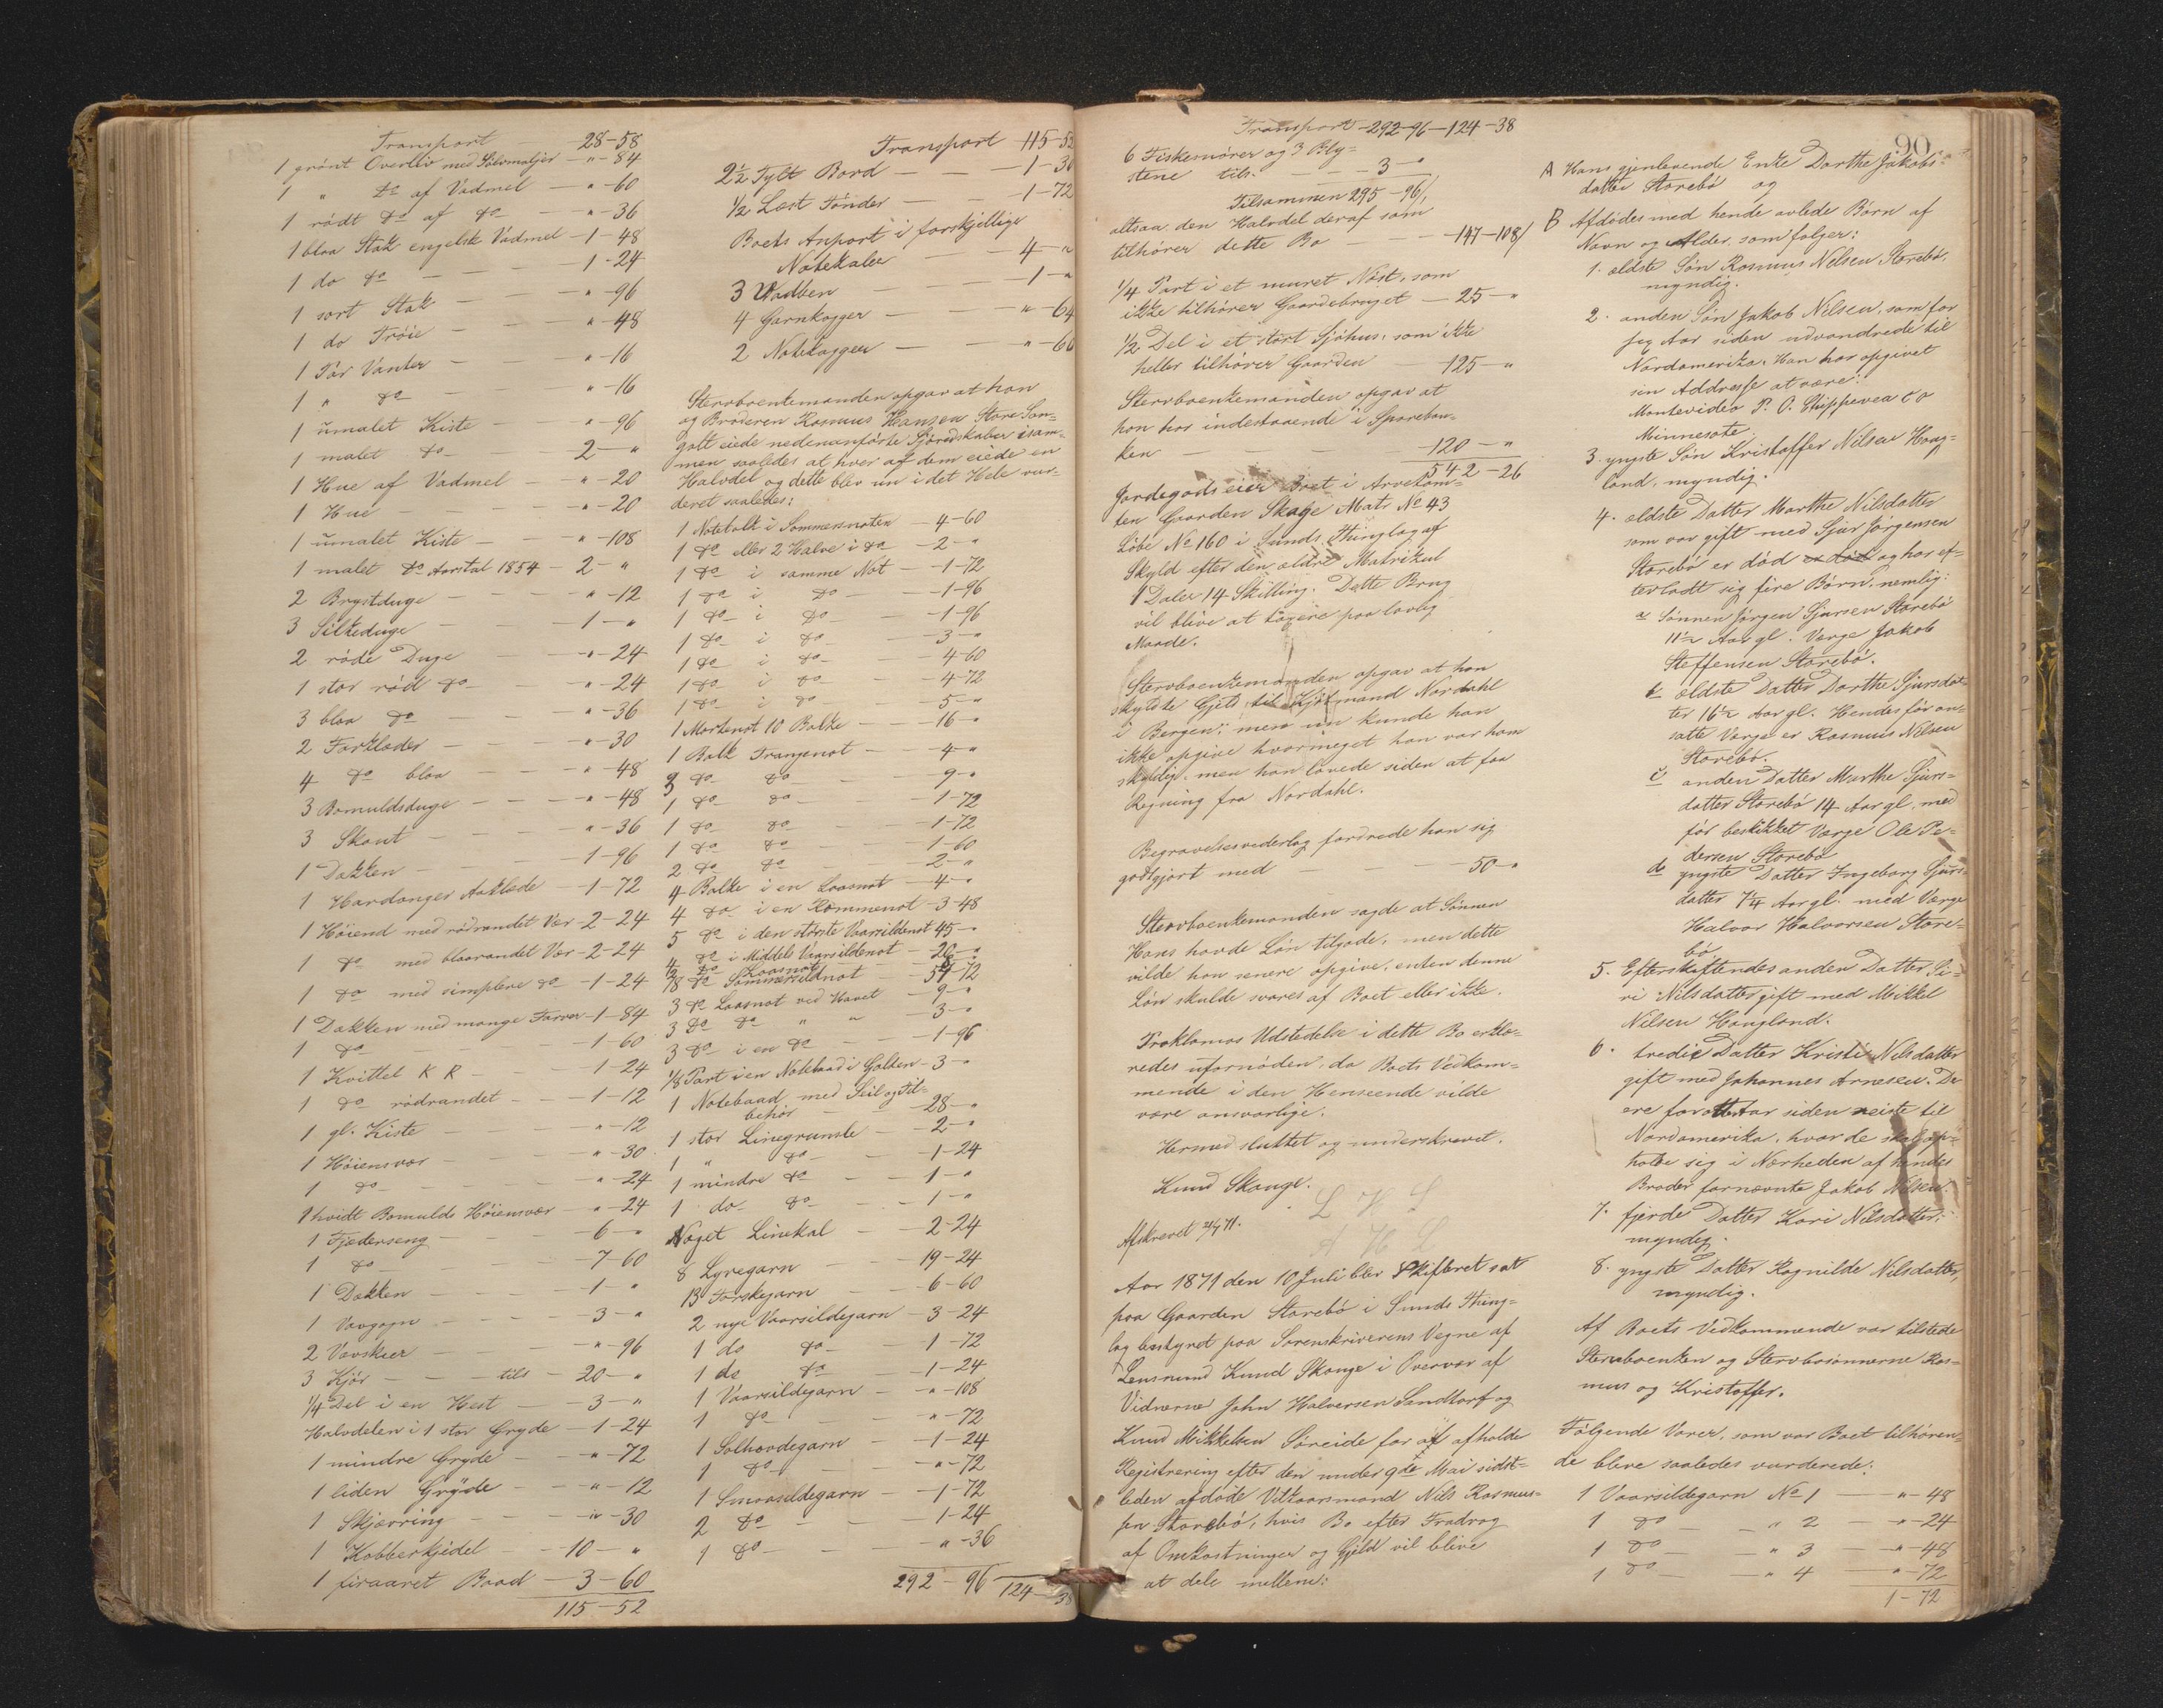 Transport — 28-58
1 grönt Overliv med Sölvmaljer — " - 84
1 " do af Vadmel — " - 60
1 rödt do af do — " - 36
1 blaa Stak engelsk Vadmel — 1 - 48
1 do do — 1 - 24
1 sort Stak — " - 96
1 do Tröie — " - 48
1 Par Vanter — " - 16
1 " do — " - 16
1 umalet Kiste — " - 96
1 malet do — 2 - "
1 Hue af Vadmel — " - 20
1 Hue — " - 20
1 umalet Kiste — " - 108
1 malet do Aarstal 1854 — 2 - "
2 Brystduge — " - 12
3 Silkeduge — 1 - "
2 röde Duge — " - 24
1 stor röd do — " - 24
3 blaa do — " - 36
2 Forklæder — " - 30
4 do blaa — " - 48
3 Bomuldsduge — " - 48
3 Skaut — " - 36
1 Dækken — 1 - 96
1 Hardanger Aaklæde — 1 - 72
1 Höiend med rödrandet Vær — 2 - 24
1 do med blaarandet Vær — 2 - 24
1 do med simplere do — 1 - 24
1 Dækken med mange Farver — 1 - 84
1 do — 1 - 60
1 Kvittel K R — 1 - 24
1 do rödrandet — 1 - 12
1 gl. Kiste — " - 12
1 Höiensvær — " - 30
1 do — " - 24
1 hvidt Bomulds Höiensvær — " - 24
1 Fjederseng — 6 - "
1 do — 7 - 60
1 Dækken — 1 - "
1 Vævgogn — 3 - "
2 Vævskeer — " - 96
3 Kjör — tils — 20 - "
1/4 Del i en Hest — 3 - "
Halvdelen i 1 stor Gryde — 1 - 24
1 mindre Gryde — " - 72
1 liden Gryde — " - 12
1 Skjærring — " - 30
1 Kobberkjedel — 10 - "
1 firaaret Baad — 3 - 60
115 - 52
Transport 115-52
2 1/2 Tylt Bord — 1 - 36
1/2 Læst Tönder — 1 - 72
Boets Anpart i forskjellige
Notekabler — 4 - "
3 Vadben — 1 - "
4 Garnkagger — " - 64
2 Notekagger — " - 60
Stervboenkemanden opgav at han
og Broderen Rasmus Hansen Store Son-
golt eiede nedenanförte Sjöredskaber isam-
men saaledes at hver af dem eiede en
Halvdel og dette blev nu i det Hele vur-
deret saaledes:
1 Notebolk i Sommernoten — 4 - 60
1 do eller 2 Halve i do — 2 - "
1 do i samme Not — 1 - 72
1 do i do — 1 - 96
1 do i do — 1 - 96
1 do i do — 3 - "
1 do i do — 4 - 60
1 do i do — 4 - 72
1 do i do — 5 - "
1 Mortenot 10 Bolke — 16 - "
1 Bolk Trangnot — 4 - "
3 do do — 9 - "
1 do do — 1 - 72
1 do do — 1 - 72
1 do do — 1 - 60
2 do do — 2 - "
4 Bolke i en Laasnot — 4 - "
4 do i en Rommenot — 3 - 48
5 do i den störste Vaarsildenot 45 - "
4 do i Middels Vaarsildenot — 26 - "
1/2 do Laasnot — 8 - "
7/8 do Sommersildnot — 54 - 72
3 do Laasnot ved Havet — 9 - "
3 do do " " — 3 - "
3 do i en do — 1 - 96
1/8 Part i en Notebaad i Golten — 3 - "
1 Notebaad med Seil og Til-
behör — 28 - "
1 stor Linegrunsle — 2 - "
1 " do — 1 - 24
1 mindre do — 1 - "
1 do do — 1 - "
Noget Linekal — 2 - 24
8 Lyregarn — 19 - 24
13 Torskegarn — 6 - 60
2 nye Vaarsildegarn — 3 - 24
1 do do — 1 - 72
1 do do — 1 - 24
1 Vaarsildegarn — " - 108
1 do — " - 72
1 Solhovdegarn — 1 - 24
1 do — " - 72
1 Smaasildegarn — 1 - 72
2 do — 1 - 24
1 do — " - 36
292 - 96 124 - 38
Transport - 292-96 — 124-38
6 Fiskesnörer og 3 Bly-
stene tils. — 3 - "
Tilsammen 295 - 96/
altsaa den Halvdel deraf som
tilhörer dette Bo — 147 - 108/
1/4 Part i et muret Nöst, som
ikke tilhörer Gaardebruget — 25 - "
1/2 Del i et stort Sjöhus, som ikke
heller tilhörer Gaarden — 125 - "
Stervboenkemanden opgav at
han har indestaaende i Spareban-
ken — 120 - "
542 - 26
Jordegods eier Boet i Arvetom-
ten Gaarden Skage Matr No 43
Löbe No 160 i Sunds Thinglag af
Skyld efter den ældre Matrikul
1 Daler 14 Skilling. Dette Brug
vil blive at taxere paa lovlig
Maade.
Stervboenkemanden opgav at han
skyldte Gjeld til Kjöbmand Nordahl
i Bergen; men nu kunde han
ikke opgive hvormeget han var ham
skyldig, men han lovede siden at faa
Regning fra Nordahl.
Begravelsesvederlag fordrede han sig
godtgjort med — 50 - "
Stervboenkemanden sagde at Sönnen
Hans havde Lön tilgode, men dette
vilde han senere opgive, enten denne
Lön skulde svares af Boet eller ikke.
Proklamas Udstedelse i dette Bo erklæ-
redes ufornöden, da Boets Vedkom-
mende i den Henseende vilde
være ansvarlige.
Hermed sluttet og underskrevet.
Knud Skauge.
L H S
Afskrevet 4/9 71.
A H L
Aar 1871 den 10 Juli blev Skifteret sat
paa Gaarden Storebö i Sunds Thing-
lag bestyret paa Sorenskriverens Vegne af
Lensmand Knud Skauge i Overvær af
Vidnerne John Halversen Sandtorf og
Knud Mikkelsen Söreide for at afholde
Registrering efter den under 9de Mai sidst-
leden afdöde Vilkaarsmand Nils Rasmus-
sen Storebö, hvis Bo efter Fradrag
af Omkostninger og Gjeld vil blive
at dele mellem:
90
A Hans gjenlevende Enke Dorthe Jakobs-
datter Storebö og
B Afdödes med hende avlede Börn af
Navn og Alder som fölger:
1. ældste Sön Rasmus Nelsen Storebö,
myndig.
2. anden Sön Jakob Nilsen, som for
sex Aar siden udvandrede til
Nordamerika. Han har opgivet
sin Addresse at være:
Montevideo P. O. Chippevea co
Minnesote.
3. yngste Sön Kristoffer Nilsen Haug-
land, myndig.
4. ældste Datter Marthe Nilsdatter
som var gift med Sjur Jörgensen
Storebö er död er död og har ef-
terladt sig fire Börn, nemlig:
a Sönnen Jörgen Sjursen Storebö
11 1/2 Aar gl. Værge Jakob
Steffensen Storebö.
b ældste Datter Dorthe Sjursdat-
ter 16 1/2 Aar gl. Hendes för an-
satte Værge er Rasmus Nilsen
Storebö.
c anden Datter Marthe Sjurs-
datter Storebö 14 Aar gl. med
för beskikket Værge Ole Pe-
dersen Storebö
d yngste Datter Ingeborg Sjurs-
datter 7 1/4 Aar gl. med Værge
Halvor Halvorsen Store-
bö.
5. Efterskiftendes anden Datter Si-
ri Nilsdatter gift med Mikkel
Nilsen Haugland.
6. tredie Datter Kristi Nilsdatter
gift med Johannes Arnesen. De
ere for otte Aar siden reiste til
Nordamerika, hvor de skal op-
holde sig i Nærheden af hendes
Broder fornævnte Jakob Nilsen.
7. fjerde Datter Kari Nilsdatter,
myndig.
8. yngste Datter Ragnilde Nilsdatter,
myndig.
Af Boets Vedkommende var tilstede
Stervboenken og Stervbosönnerne Ras-
mus og Kristoffer.
Fölgende Varer, som var Boet tilhören-
de bleve saaledes vurderede:
1 Vaarsildegarn No 1 — " - 48
1 do — " 2 — " - 24
1 do — " 3 — " - 48
1 do — " 4 — " - 72
1 - 72